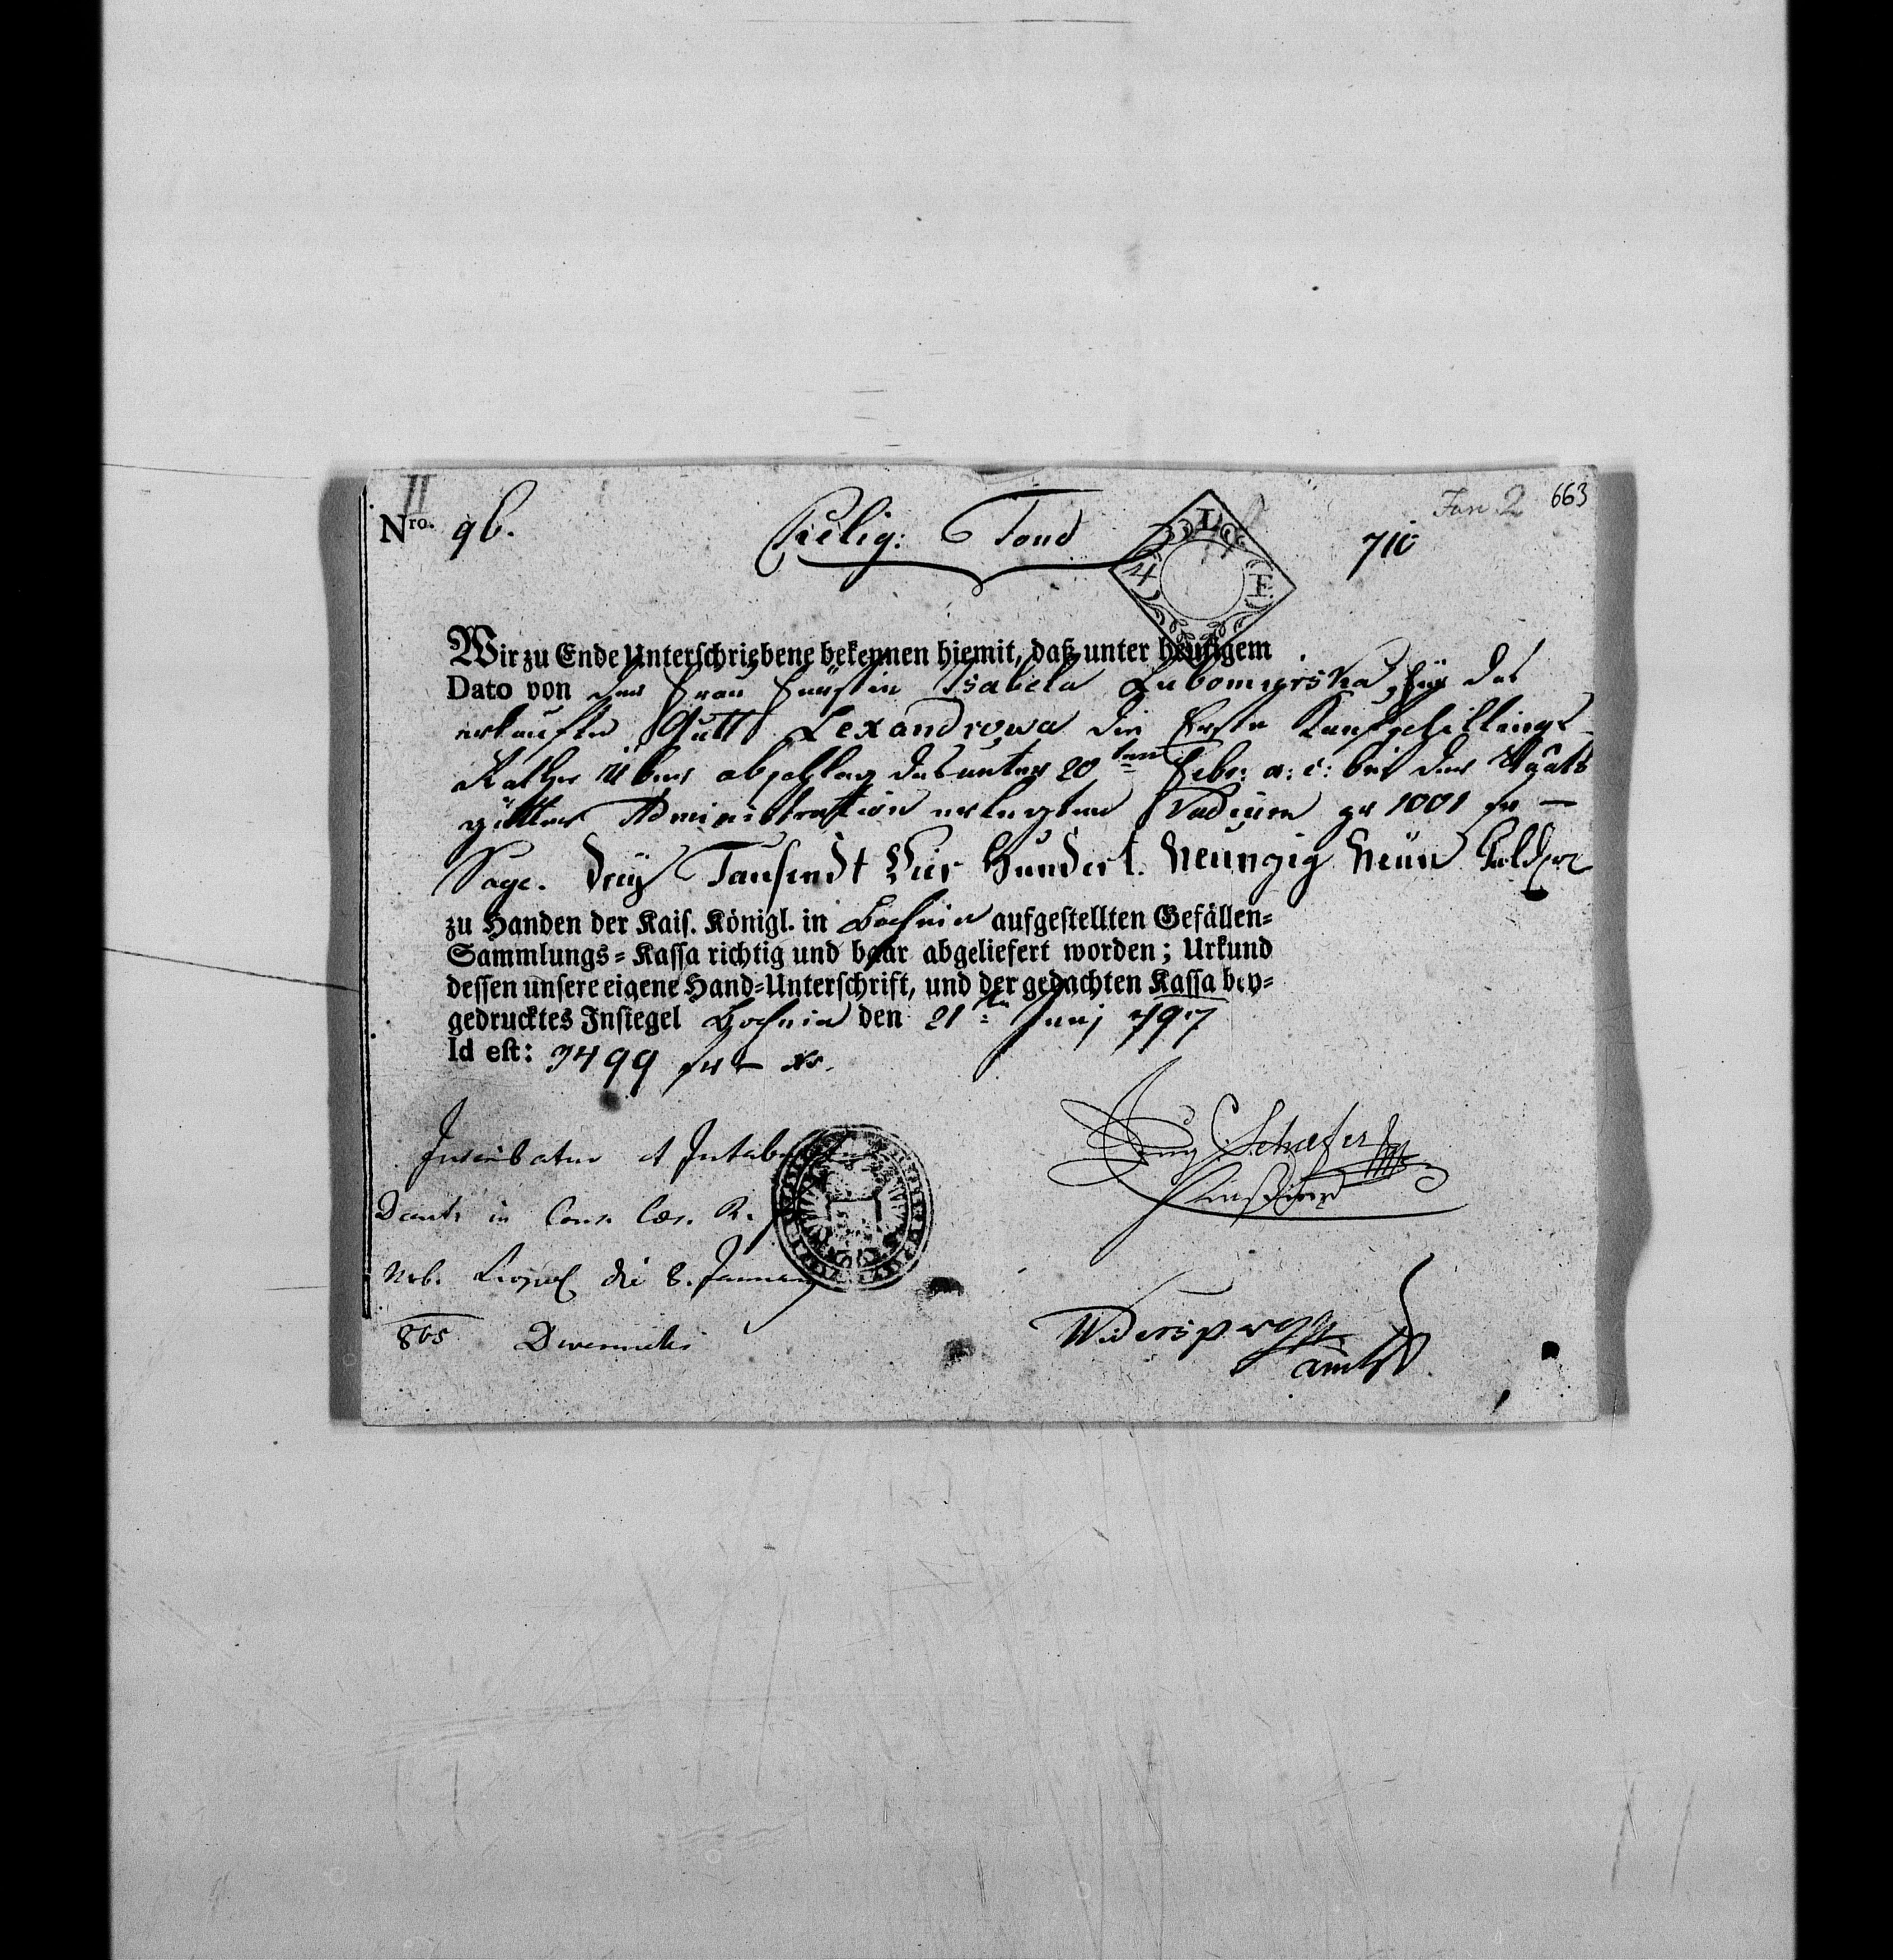 II
Fasc 2 663
Nro. 96. Relig: Fond
4 I F
Wir zu Ende Unterschriebene bekennen hiemit, daß unter heutigem
Dato von der Frau Fürstin Isabela Lubomirska, für das
erkaufte Gutt Lexandrowa die Erste Kaufschillings
Rathe über abschlag des unter 20ten Febr: a: c: bei der Staats
gütter Administration erlegten Vadium pr 1001 fr —
Sage. Drey Tausendt Vier Hundert. Neunzig Neün Gulden
zu Handen der Kais. Königl. in Bochnia aufgestellten Gefällen=
Sammlungs=Kassa richtig und baar abgeliefert worden; Urkund
dessen unsere eigene Hand=Unterschrift, und der gedachten Kassa bey=
gedrucktes Insiegel Bochnia den 21ten Junj 797
Id est: 3499 fr — xr.
Inscribatur et Intabuletur
Schäfer
in Cons. Cæs. R.
die 8. January
805